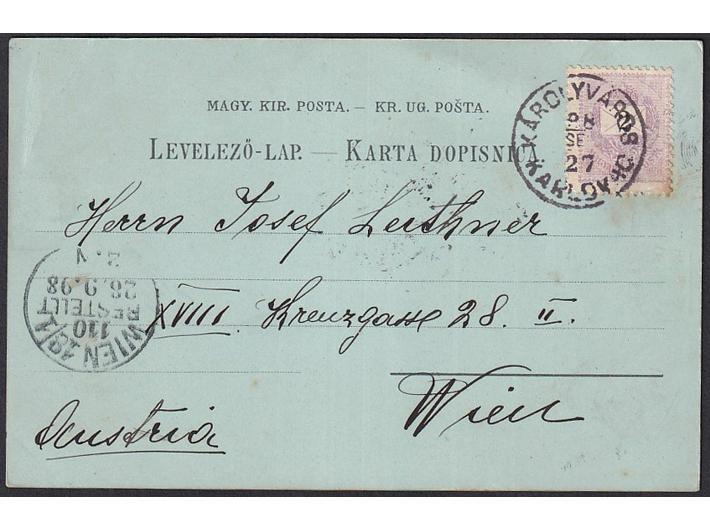 MAGY. KIR. POSTA. — KR. UG. POŠTA.
LEVELEZŐ-LAP. — KARTA DOPISNICA.
KÁROLYVÁROS
98
SE
27
KARLOVAC
Herrn Josef Leithner
XVIII. Kreuzgasse 28. II.
Wien
Austria
WIEN 18/1
110
BESTELLT
28.9.98
2.V